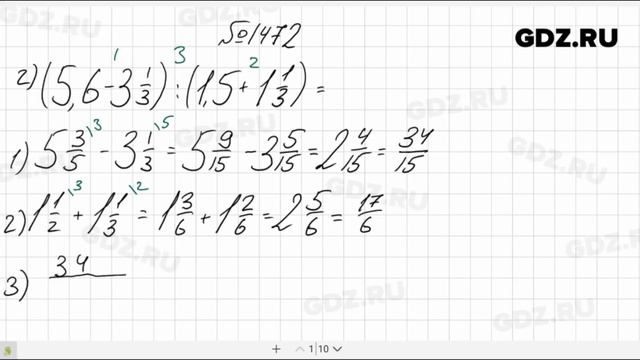 №1472
GDZ.RU
1 3 2
2) (5,6 - 3 1/3) : (1,5 + 1 1/3) =
1) 5 3/5 \3 - 3 1/3 \5 = 5 9/15 - 3 5/15 = 2 4/15 = 34/15
2) 1 1/2 \3 + 1 1/3 \2 = 1 3/6 + 1 2/6 = 2 5/6 = 17/6
3) 34
GDZ.RU
GDZ.RU
GDZ.RU
GDZ.RU
GDZ.RU
GDZ.RU
GDZ.RU
+ 1 | 10